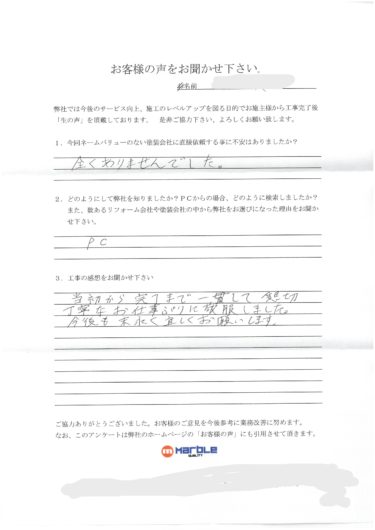 お客様の声をお聞かせ下さい。
お名前
弊社では今後のサービス向上、施工のレベルアップを図る目的でお施主様から工事完了後
「生の声」を頂戴しております。 是非ご協力下さい、よろしくお願い致します。
1．今回ネームバリューのない塗装会社に直接依頼する事に不安はありましたか?
全くありませんでした。
2．どのようにして弊社を知りましたか?PCからの場合、どのように検索しましたか?
また、数あるリフォーム会社や塗装会社の中から弊社をお選びになった理由をお聞か
せ下さい。
PC
3．工事の感想をお聞かせ下さい
当初から完了まで一貫して懇切
丁寧なお仕事ぶりに敬服しました。
今後も末永く宜しくお願いします。
ご協力ありがとうございました。お客様のご意見を今後参考に業務改善に努めます。
なお、このアンケートは弊社のホームページの「お客様の声」にも引用させて頂きます。
marble
QUALITY